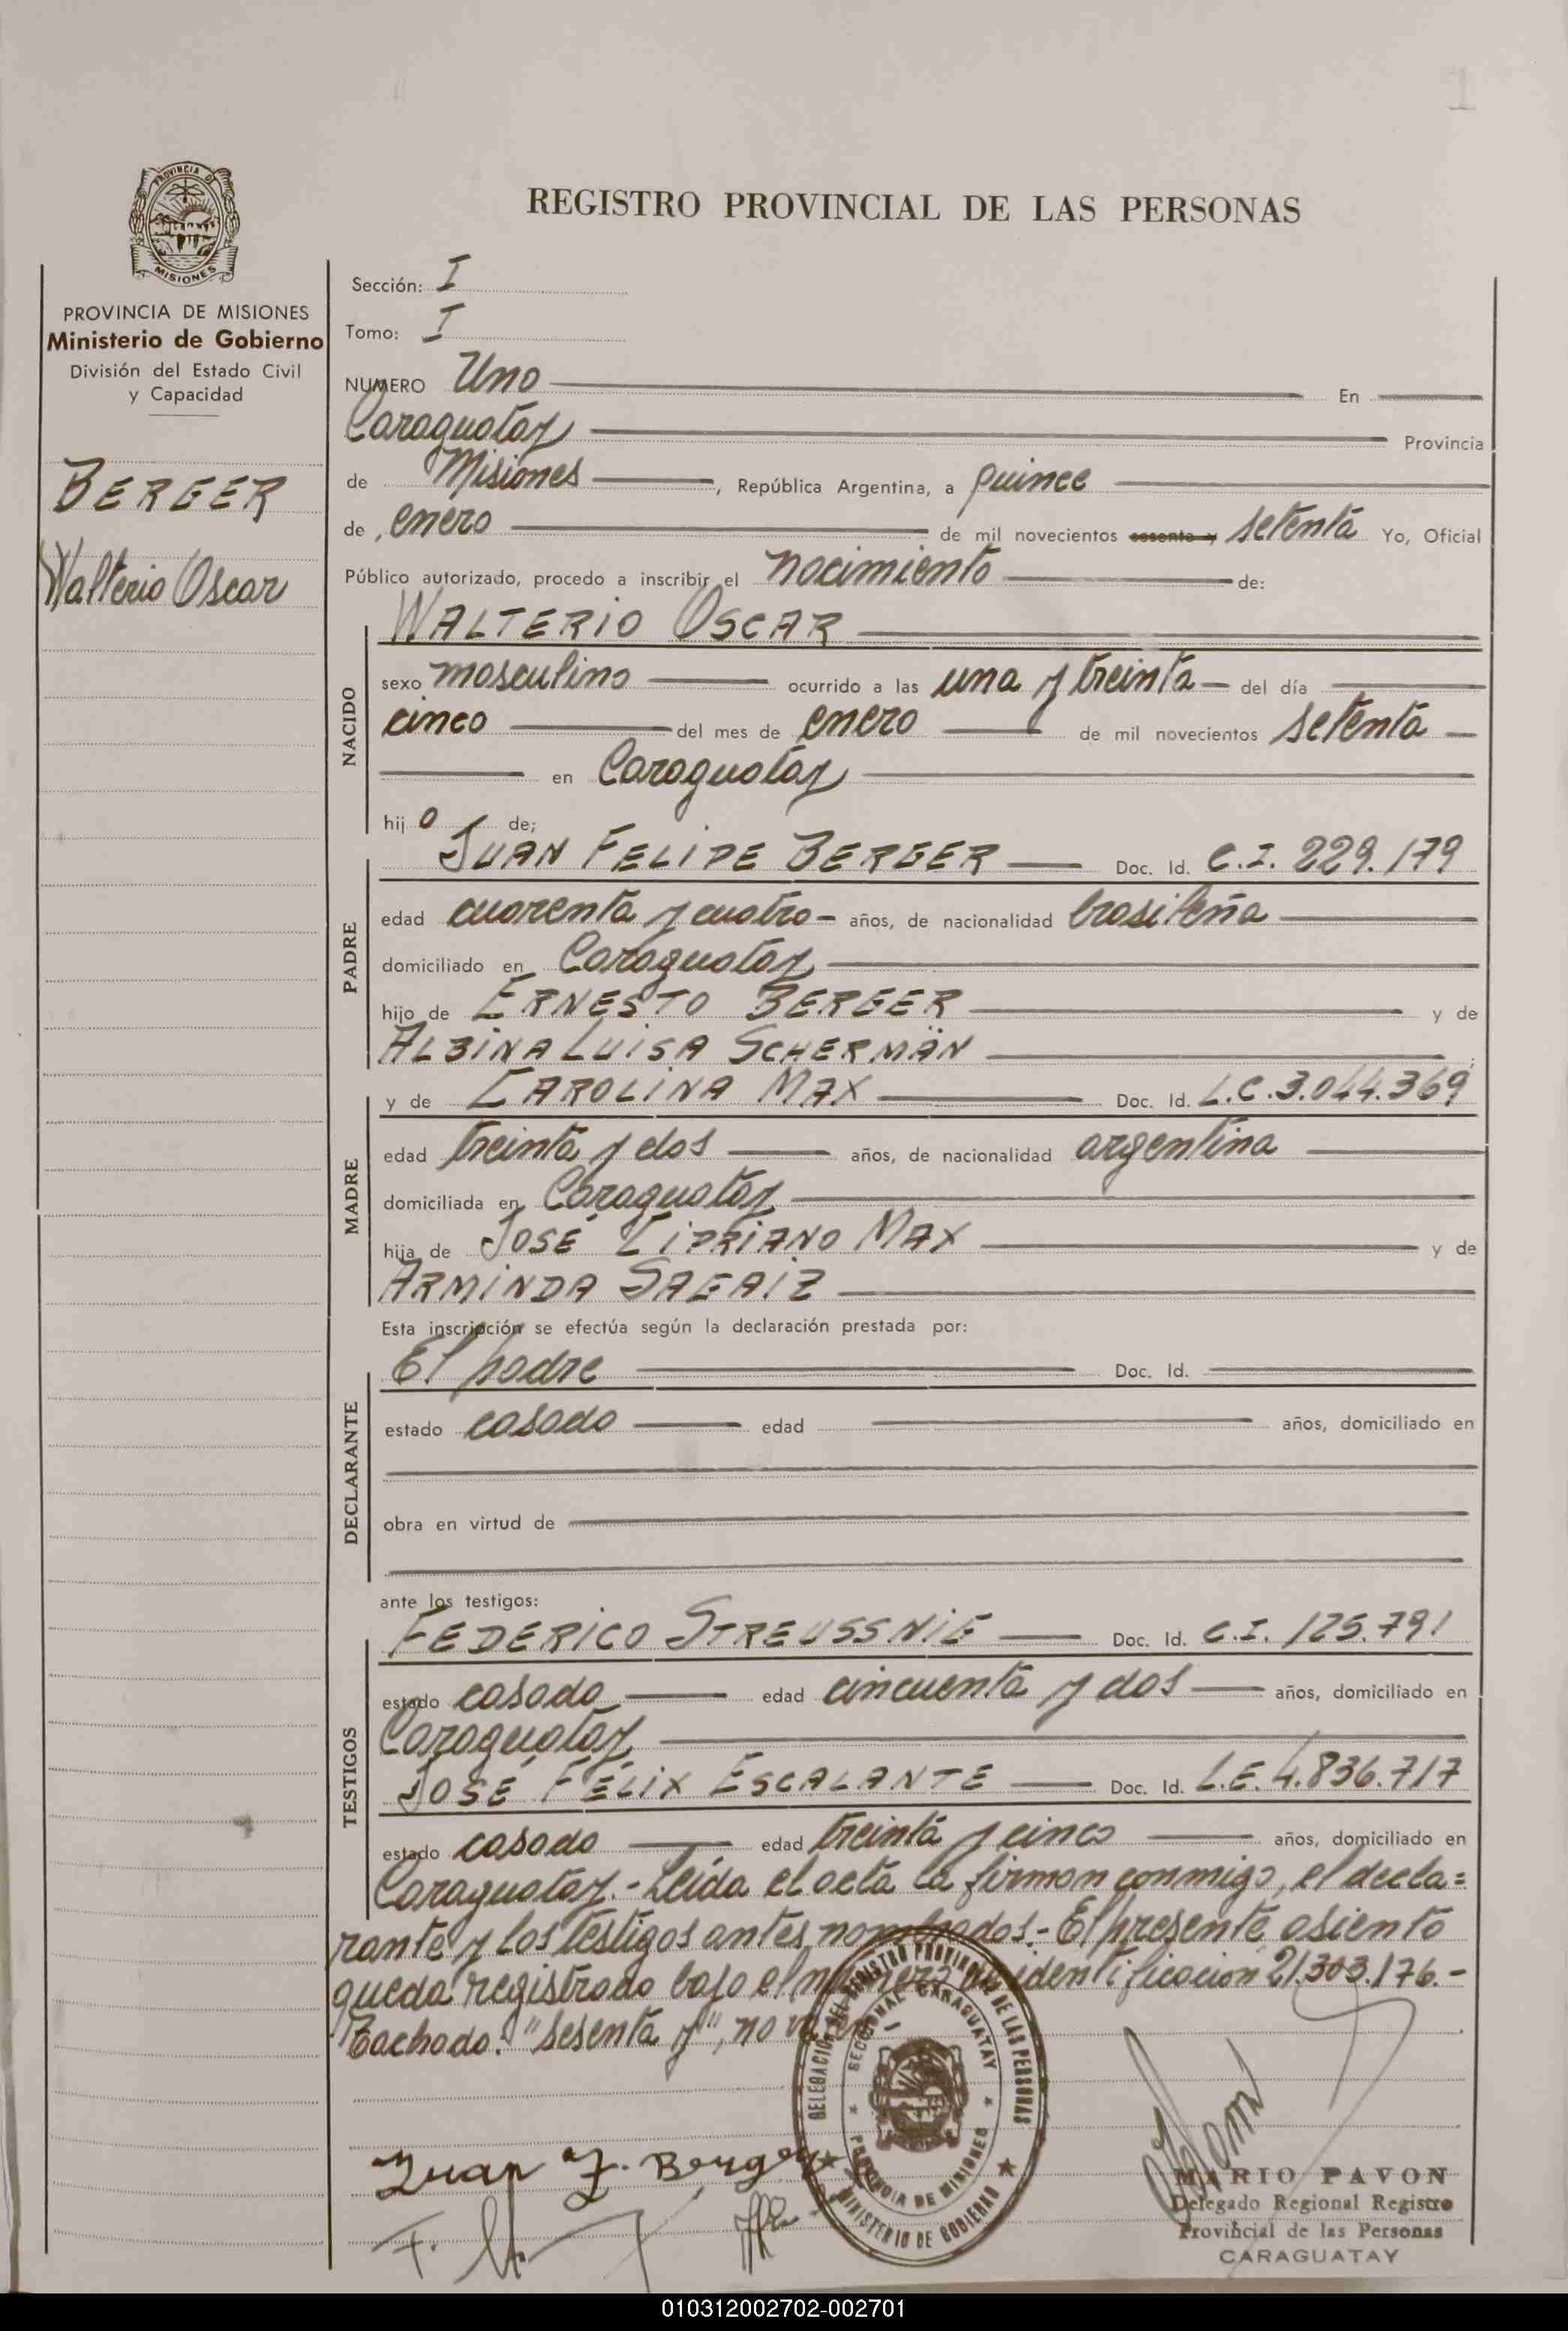 REGISTRO PROVINCIAL DE LAS PERSONAS
PROVINCIA DE
MISIONES
PROVINCIA DE MISIONES
Ministerio de Gobierno
División del Estado Civil
y Capacidad
BERGER
Walterio Oscar
Sección: I
Tomo: I
NUMERO Uno En
Caraguatay Provincia
de Misiones, República Argentina, a quince
de enero de mil novecientos sesenta y setenta Yo, Oficial
Público autorizado, procedo a inscribir el nacimiento de:
NACIDO
WALTERIO OSCAR
sexo masculino ocurrido a las una y treinta del día
cinco del mes de enero de mil novecientos setenta
en Caraguatay
hijo de;
PADRE
JUAN FELIPE BERGER Doc. Id. C.I. 229.179
edad cuarenta y cuatro años, de nacionalidad brasileña
domiciliado en Caraguatay
hijo de ERNESTO BERGER y de
ALBINA LUISA SCHERMÄN
MADRE
y de CAROLINA MAX Doc. Id. L.C. 3.044.369
edad treinta y dos años, de nacionalidad argentina
domiciliada en Caraguatay
hija de JOSÉ CIPRIANO MAX y de
ARMINDA SAGAIZ
Esta inscripción se efectúa según la declaración prestada por:
DECLARANTE
El padre Doc. Id.
estado casado edad años, domiciliado en
obra en virtud de
ante los testigos:
TESTIGOS
FEDERICO STREUSSNIG Doc. Id. C.I. 125.791
estado casado edad cincuenta y dos años, domiciliado en
Caraguatay
JOSÉ FÉLIX ESCALANTE Doc. Id. L.E. 4.836.717
estado casado edad treinta y cinco años, domiciliado en
Caraguatay.- Leída el acta la firman conmigo, el decla=
rante y los testigos antes nombrados.- El presente asiento
queda registrado bajo el número de identificacion 21.303.176.-
Tachado: "sesenta y", no vale.
DELEGACION DEL REGISTRO PROVINCIAL DE LAS PERSONAS
SECCIONAL CARAGUATAY
PROVINCIA DE MISIONES
MINISTERIO DE GOBIERNO
Juan F. Berger
MARIO PAVON
Delegado Regional Registro
Provincial de las Personas
CARAGUATAY
010312002702-002701